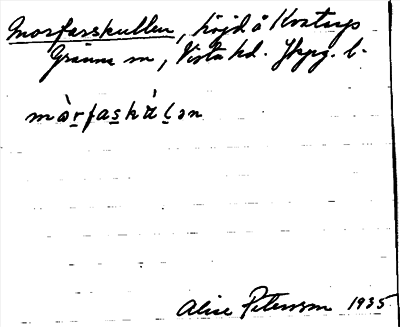 Morfarskullen, höjd å Kvarup
Gränna sn, Vista hd. Jkpg. l.
mòrfaskàlən
Alice Petersson 1935